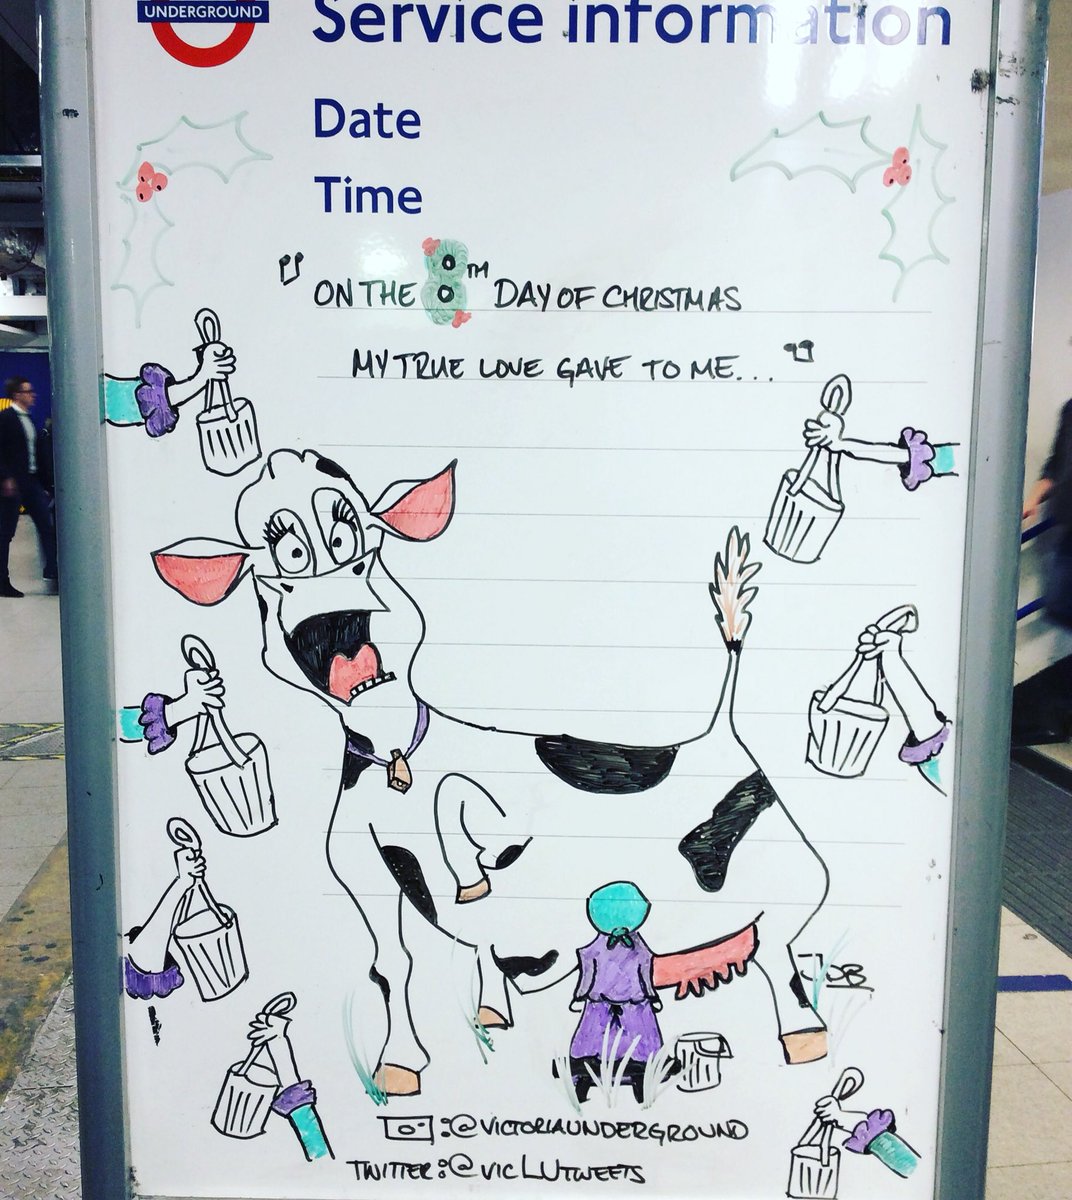 UNDERGROUND
Service information
Date
Time
"ON THE 8TH DAY OF CHRISTMAS
MY TRUE LOVE GAVE TO ME..."
JOB
:@VICTORIAUNDERGROUND
TWITTER:@VICLUTWEETS